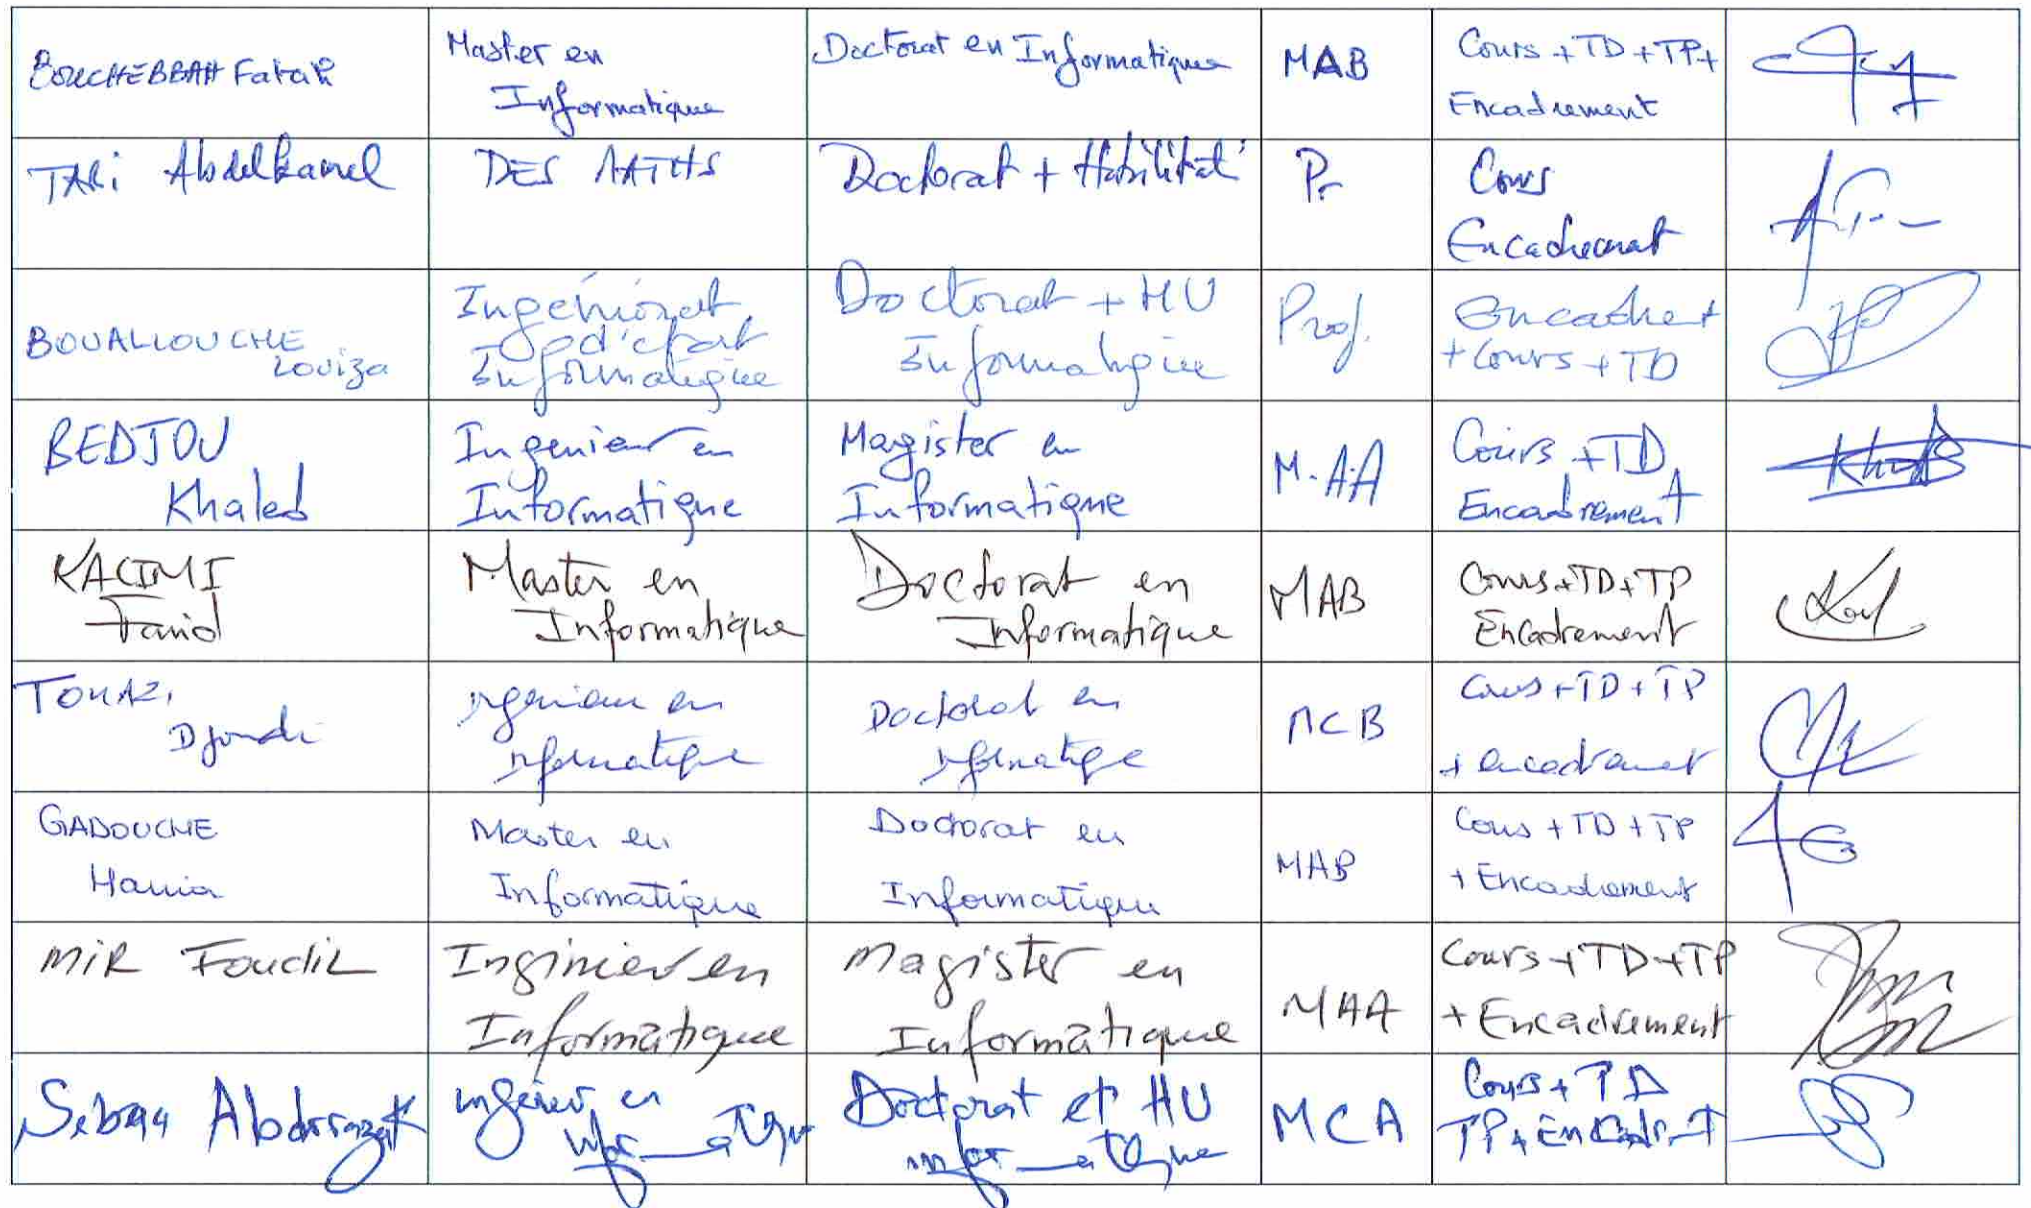 BOUCHEBBAH Fatah
Master en
Informatique
Doctorat en Informatique
MAB
Cours + TD + TP +
Encadrement
TARi Abdelkamel
DES MATHS
Doctorat + Habilitat°
Pr
Cours
Encadrement
BOUALLOUCHE
Louiza
Ingéniorat
d'état
Informatique
Doctorat + HU
Informatique
Prof.
Encadret
+ Cours + TD
BEDJOU
Khaled
Ingenieur en
Informatique
Magister en
Informatique
M.AA
Cours + TD
Encadrement
KACIMI
Farid
Master en
Informatique
Doctorat en
Informatique
MAB
Cours + TD + TP
Encadrement
TOUAZi
Djoudi
Ingenieur en
Informatique
Doctorat en
Informatique
MCB
Cours + TD + TP
+ encadrement
GADOUCHE
Hania
Master en
Informatique
Doctorat en
Informatique
MAB
Cours + TD + TP
+ Encadrement
MiR FoudiL
Inginieur en
Informatique
Magister en
Informatique
MAA
Cours + TD + TP
+ Encadrement
Sebaa Abderrazak
ingénieur en
informatique
Doctorat et HU
informatique
MCA
Cours + TD
TP + Encadr_t